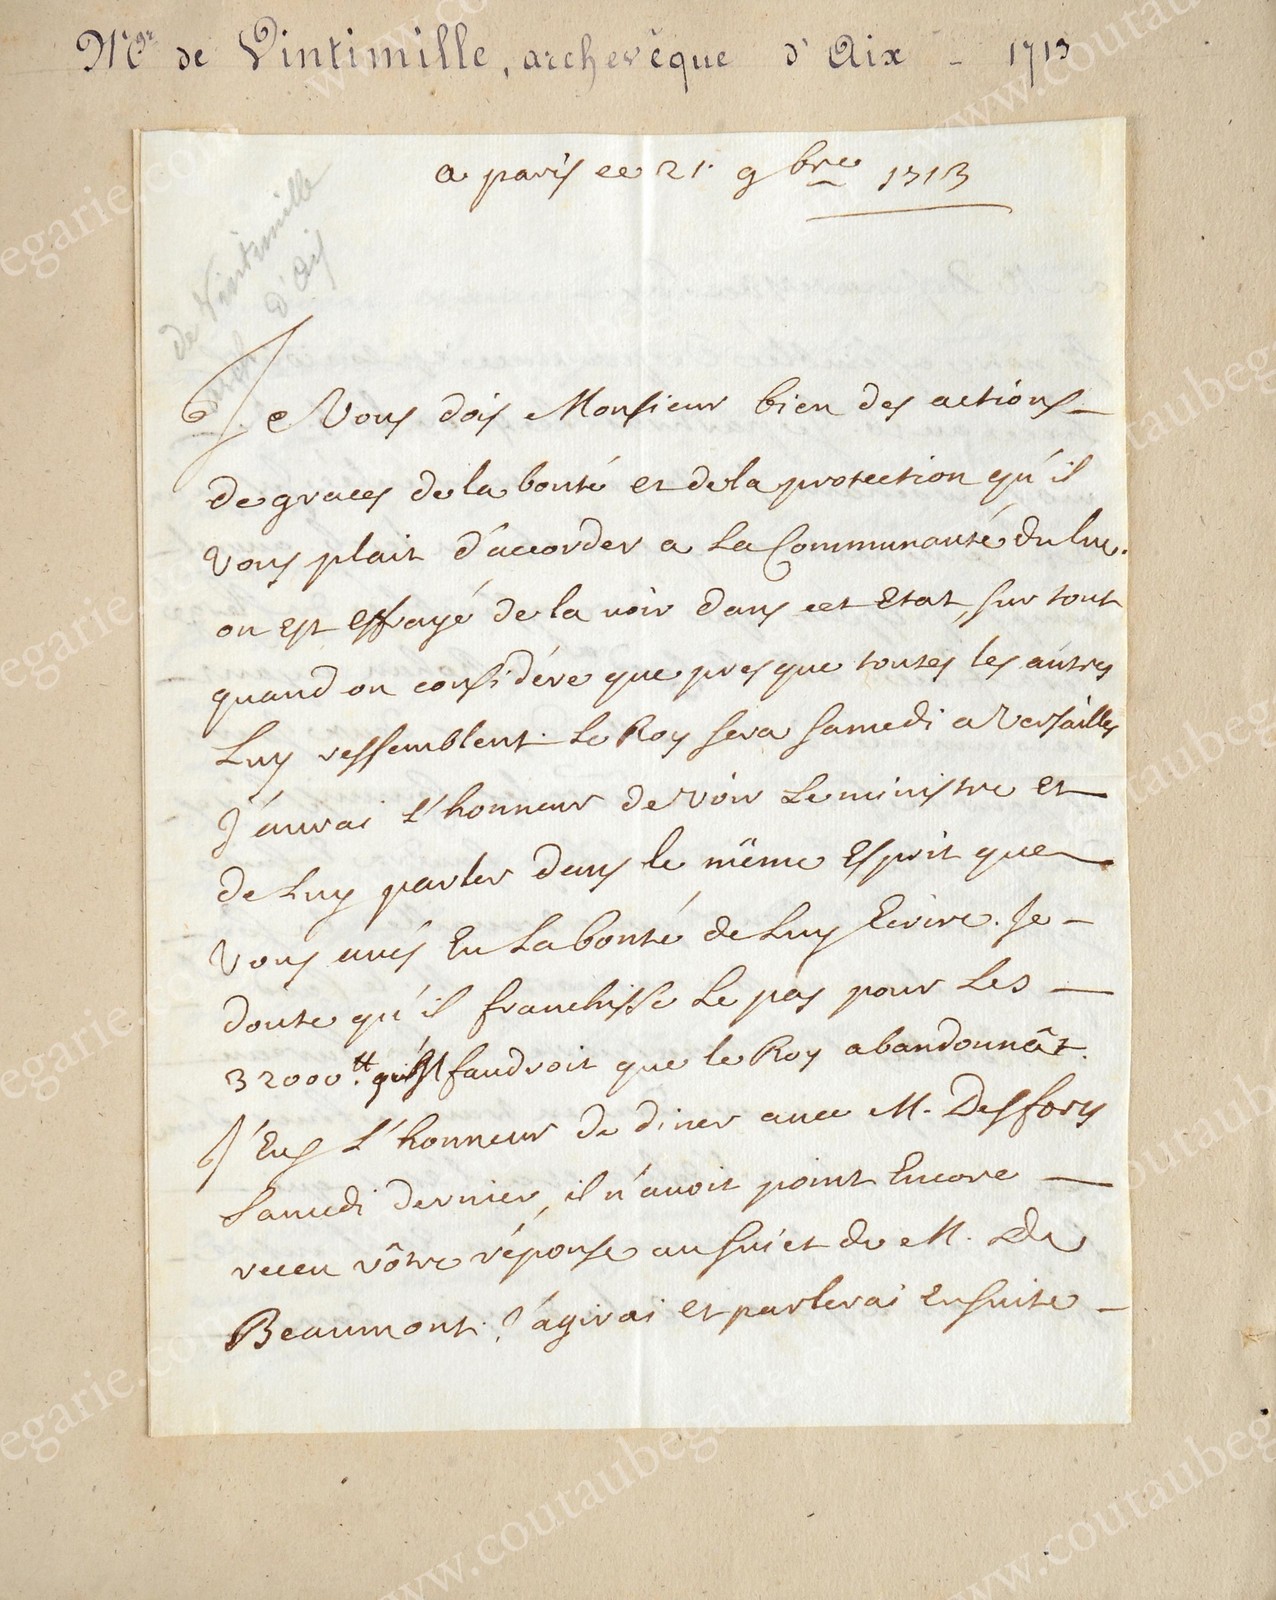 Mgr de Vintimille, archevêque d'Aix - 1713
a paris ce 21. 9bre 1713
de Vintimille
arch. d'Aix
Je Vous dois Monsieur bien des actions
de graces de la bonté et de la protection qu'il
vous plait d'accorder a La Communauté du luc.
on est effrayé de la uoir dans cet Etat, sur tout
quand on considére que presque toutes les autres
Luy ressemblent. Le Roy sera samedi a Versailles
J'aurai L'honneur de voir Le ministre et
de Luy parler dans le même Esprit que
Vous aués Eu La bonté de Luy Ecrire. Je
doute qu'il franchisse Le pas pour Les
32000tt qu'il faudroit que le Roy abandonnât.
J'Eus L'honneur de diner auec M. Desforts
Samedi dernier, il n'auoit point Encore
receu vôtre réponse au suiet de M. De
Beaumont. J'agirai et parlerai Ensuite
www.coutaubegarie.com